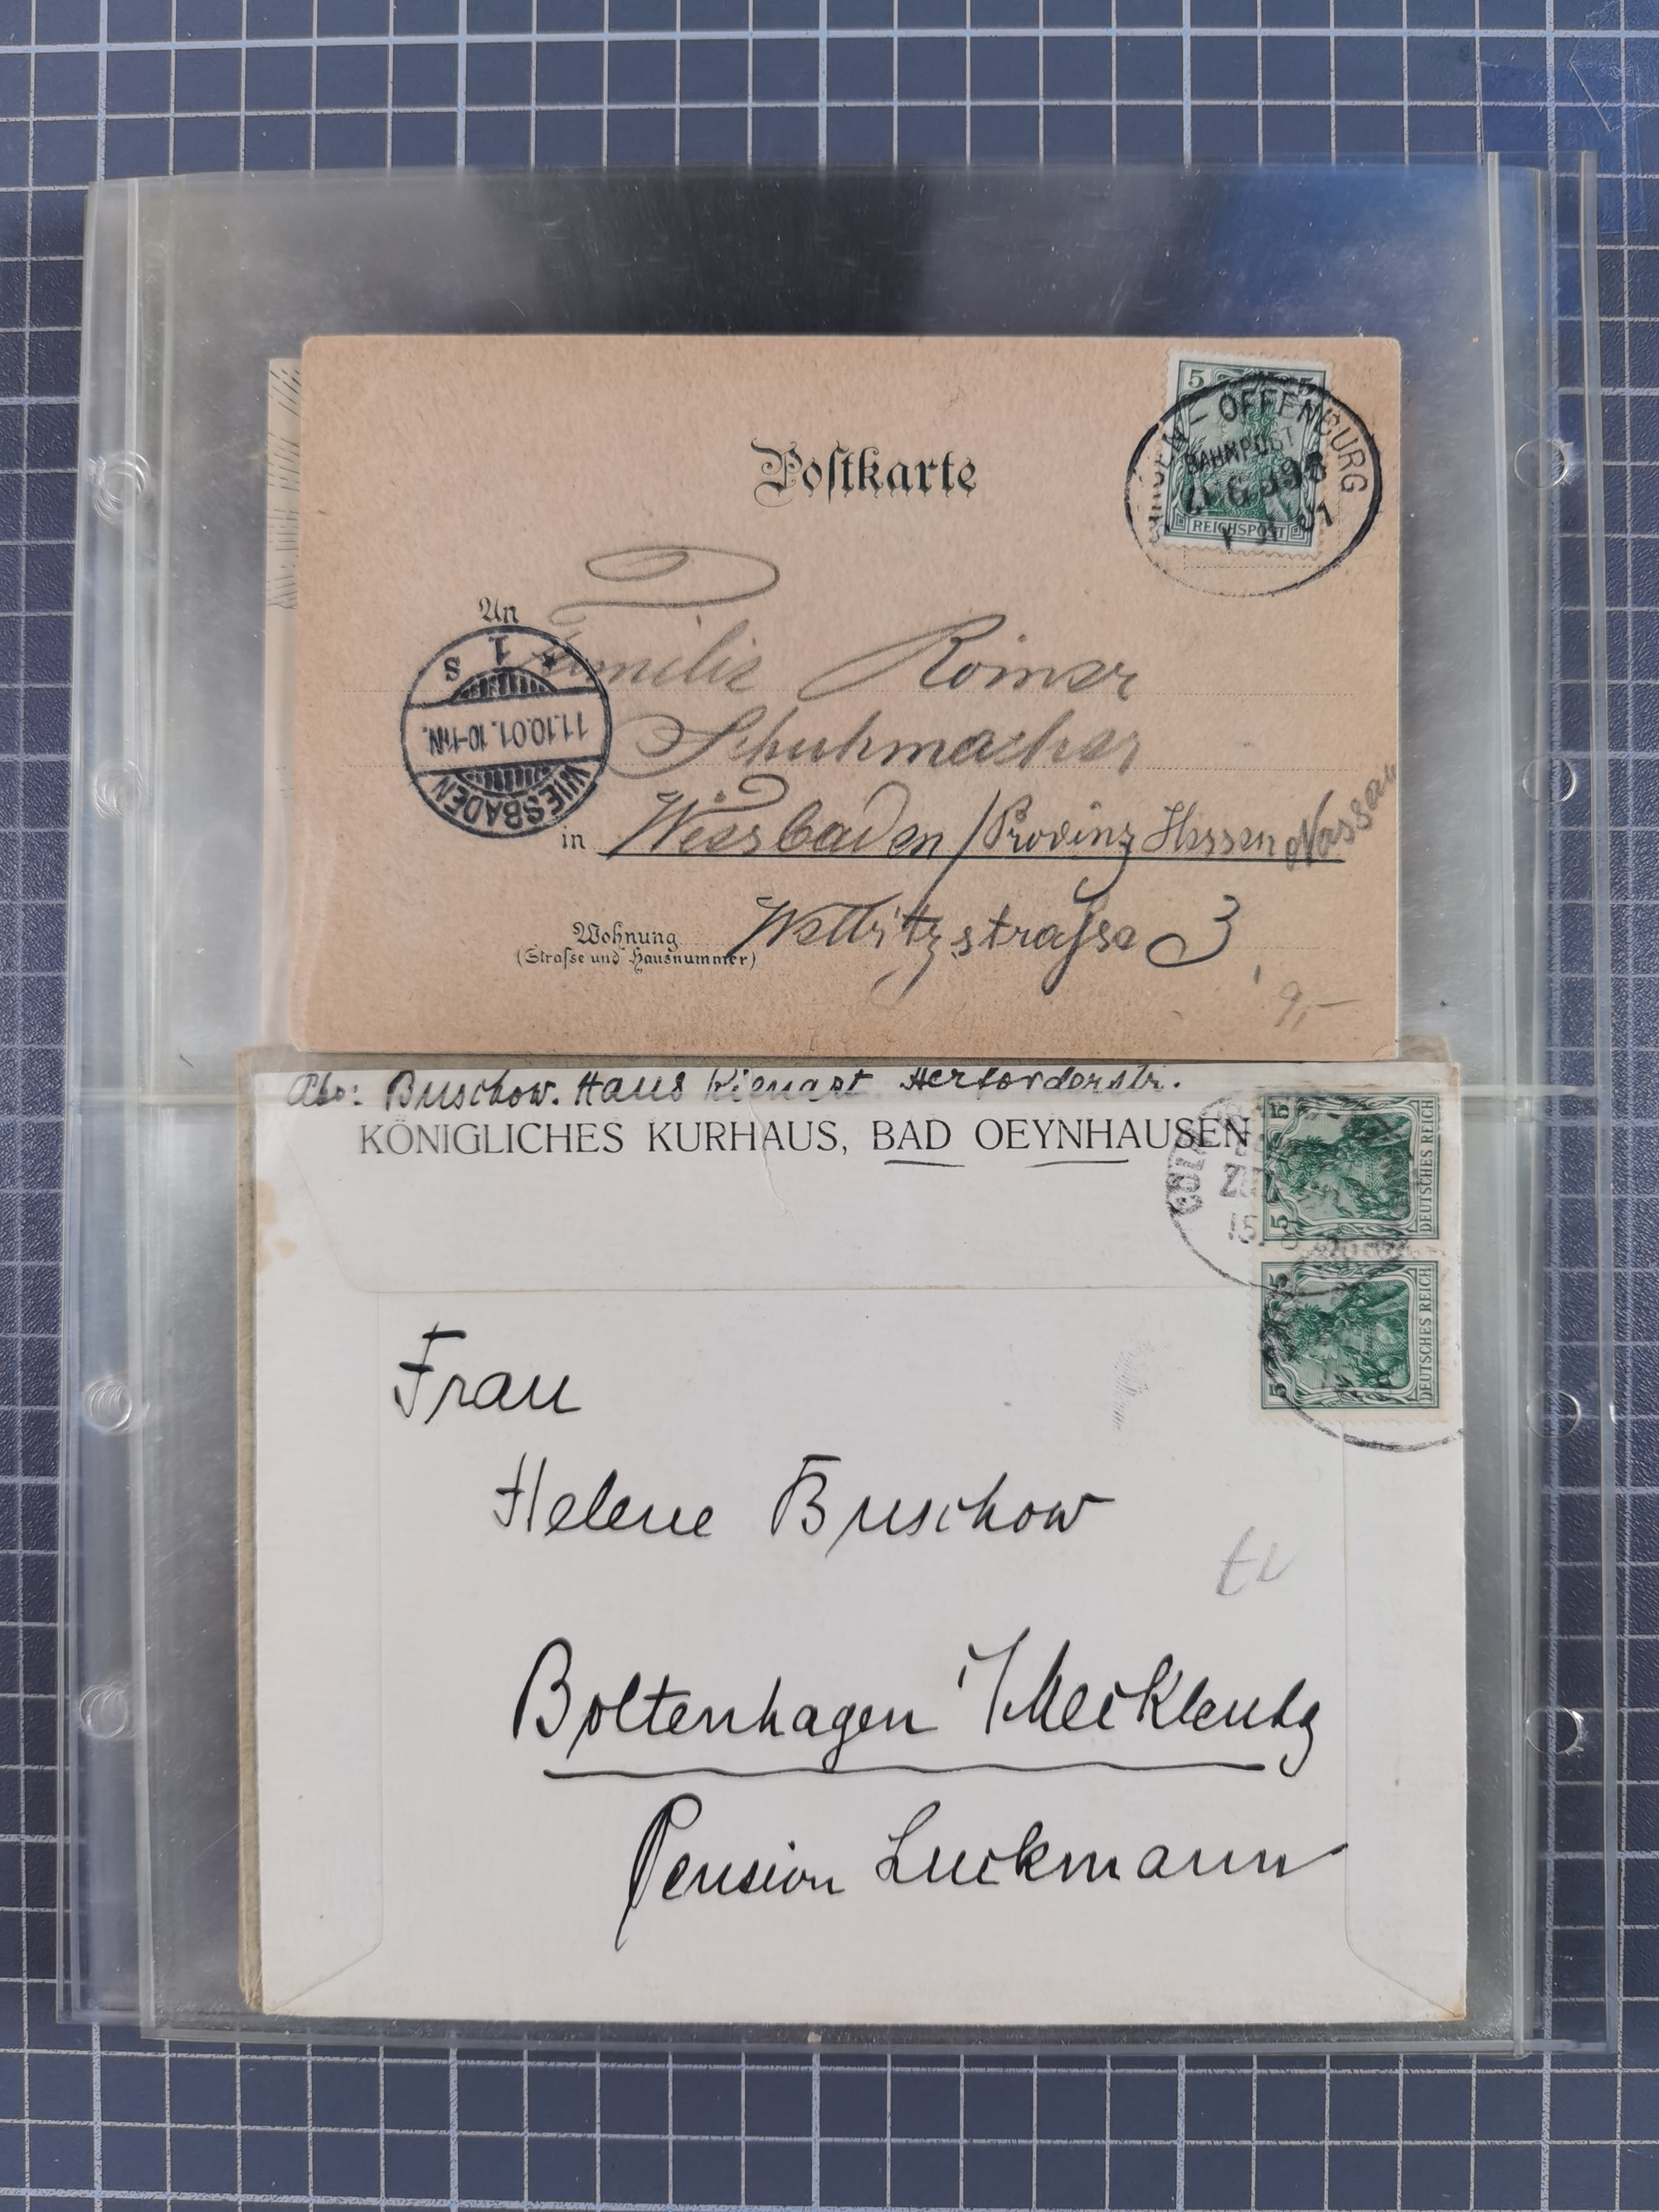 Postkarte
5 5
REICHSPOST
OFFENBURG
BAHNPOST
An
Familie Roimer
Schuhmacher
in Wiesbaden / Provinz Hessen Nassau
Wohnung
(Strasse und Hausnummer)
Wellritzstrasse 3
WIESBADEN
11.10.01.10-11N.
* 1 s
9,-
Abs: Buschow. Haus Kienast. Herforderstr.
KÖNIGLICHES KURHAUS, BAD OEYNHAUSEN
5 5
DEUTSCHES REICH
5 5
DEUTSCHES REICH
Frau
Helene Buschow
Boltenhagen i/Mecklenbg
Pension Luckmann